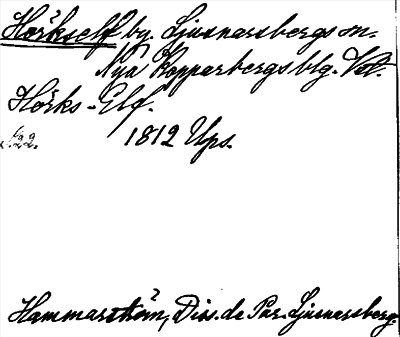 Hörkself by. Ljusnarsbergs sn.
Nya Kopparbergs blg. Vstl.
Hörks-Elf.
s. 22. 1812 Ups.
Hammarström, Diss. de Par. Ljusnarsberg.